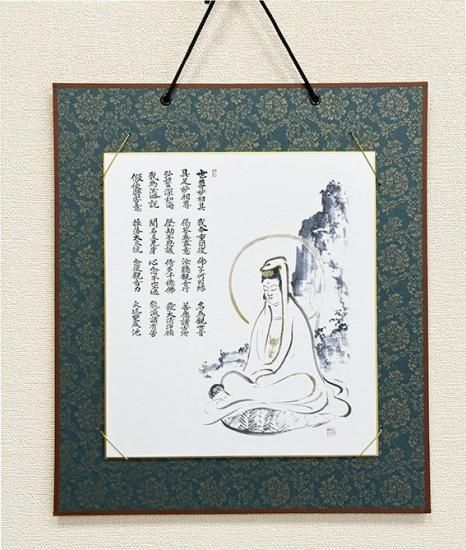 世尊妙相具 我今重問彼 佛子何因縁 名為観世音
具足妙相尊 偈答無盡意 汝聴観音行 善應諸方所
弘誓深如海 歴劫不思議 侍多千億佛 發大清浄願
我為汝略説 聞名及見身 心念不空過 能滅諸有苦
假使興害意 推落大火坑 念彼観音力 火坑變成池